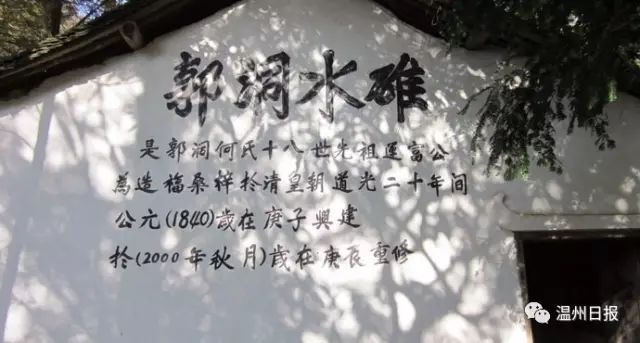 郭洞水碓
是郭洞何氏十八世先祖运富公
為造福桑梓扵清皇朝道光二十年间
公元(1840)歲在庚子興建
扵(2000年秋月)歲在庚辰重修
温州日报